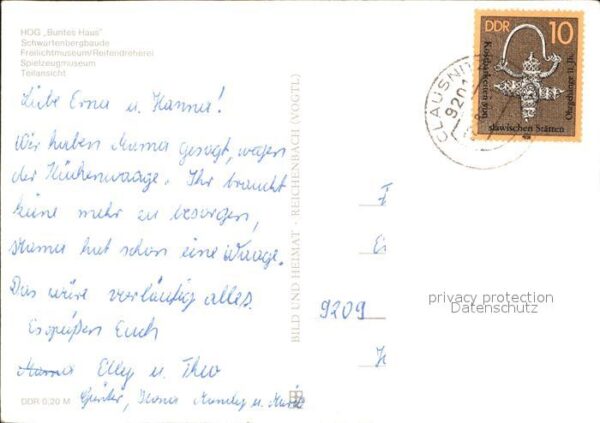 HOG „Buntes Haus"
Schwartenbergbaude
Freilichtmuseum/Reifendreherei
Spielzeugmuseum
Teilansicht
Liebe Erna u. Hanna!
Wir haben Mama gesagt, wegen
der Küchenwaage. Ihr braucht
keine mehr zu besorgen,
Mama hat schon eine Waage.
Das wäre vorläufig alles.
Es grüßen Euch
Mama Elly u. Theo
Günter, Ilona Mandy u.
DDR 0,20 M
BILD UND HEIMAT · REICHENBACH (VOGTL)
CLAUSNIT
9201
DDR 10
Kostbarkeiten aus
slawischen Stätten
Ohrgehänge 11. Jh.
9209
privacy protection
Datenschutz